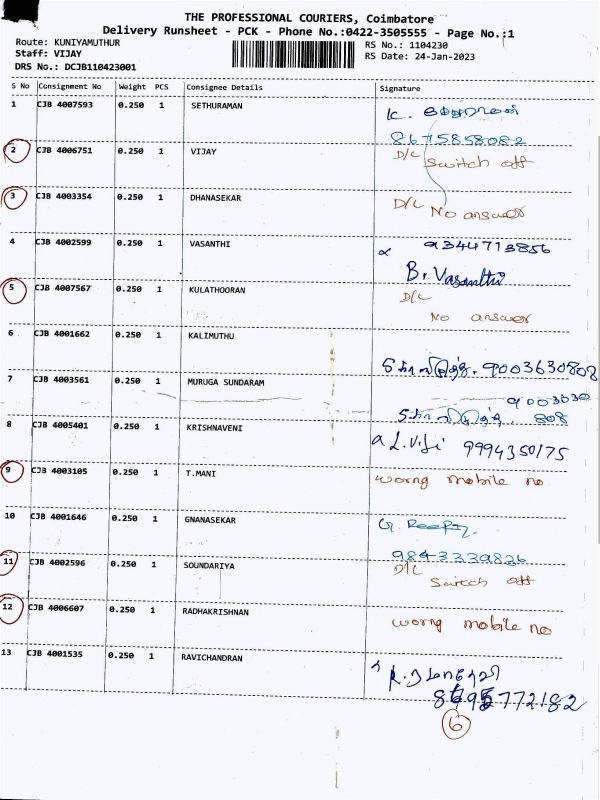 THE PROFESSIONAL COURIERS, Coimbatore
Delivery Runsheet - PCK - Phone No.:0422-3505555 - Page No.:1
Route: KUNIYAMUTHUR
Staff: VIJAY
DRS No.: DCJB110423001
RS No.: 1104230
RS Date: 24-Jan-2023
S No Consignment No Weight PCS Consignee Details Signature
1 CJB 4007593 0.250 1 SETHURAMAN K.
8675858082
2 CJB 4006751 0.250 1 VIJAY D/C Switch off
3 CJB 4003354 0.250 1 DHANASEKAR D/C No answer
4 CJB 4002599 0.250 1 VASANTHI 9344713856
B. Vasanthi
5 CJB 4007567 0.250 1 KULATHOORAN D/C
No answer
6 CJB 4001662 0.250 1 KALIMUTHU 9003630808
7 CJB 4003561 0.250 1 MURUGA SUNDARAM 9003030
808
8 CJB 4005401 0.250 1 KRISHNAVENI 9994350175
9 CJB 4003105 0.250 1 T.MANI worng mobile no
10 CJB 4001646 0.250 1 GNANASEKAR
9843339836
11 CJB 4002596 0.250 1 SOUNDARIYA D/C
Switch off
12 CJB 4006607 0.250 1 RADHAKRISHNAN worng mobile no
13 CJB 4001535 0.250 1 RAVICHANDRAN
6